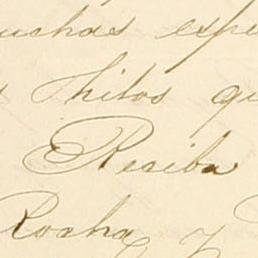 uchas espe
hilos qu
Reciba
Rocha y